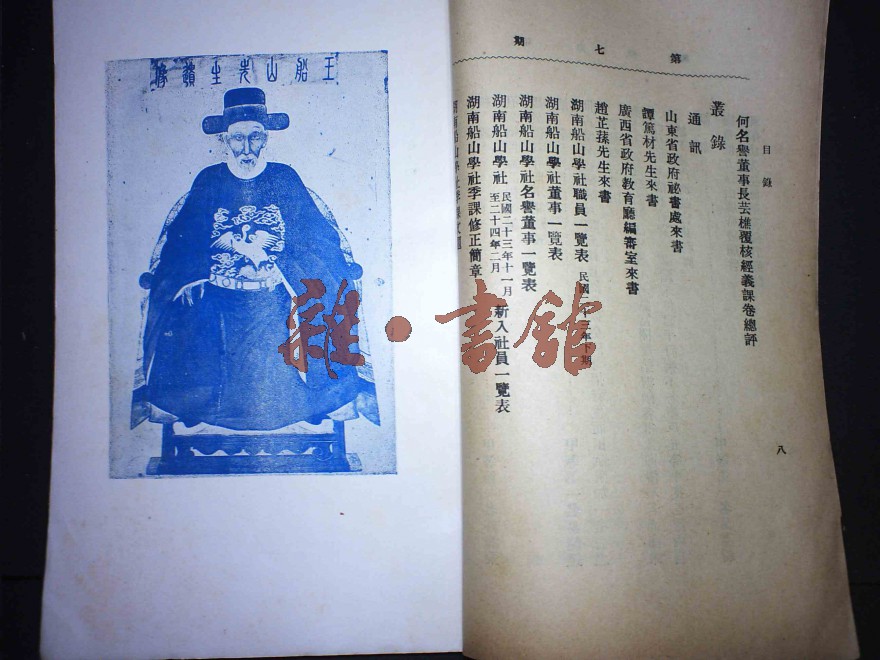 第七期
目錄
何名譽董事長芸樵覆核經義課卷總評
叢錄
通訊
山東省政府祕書處來書
譚篤材先生來書
廣西省政府教育廳編審室來書
趙芷蓀先生來書
湖南船山學社職員一覽表 民國 十三年下期
湖南船山學社董事一覽表
湖南船山學社名譽董事一覽表
湖南船山學社 民國二十三年十一月至二十四年二月 新入社員一覽表
湖南船山學社季課修正簡章
八
王船山先生遺像
雜·書館